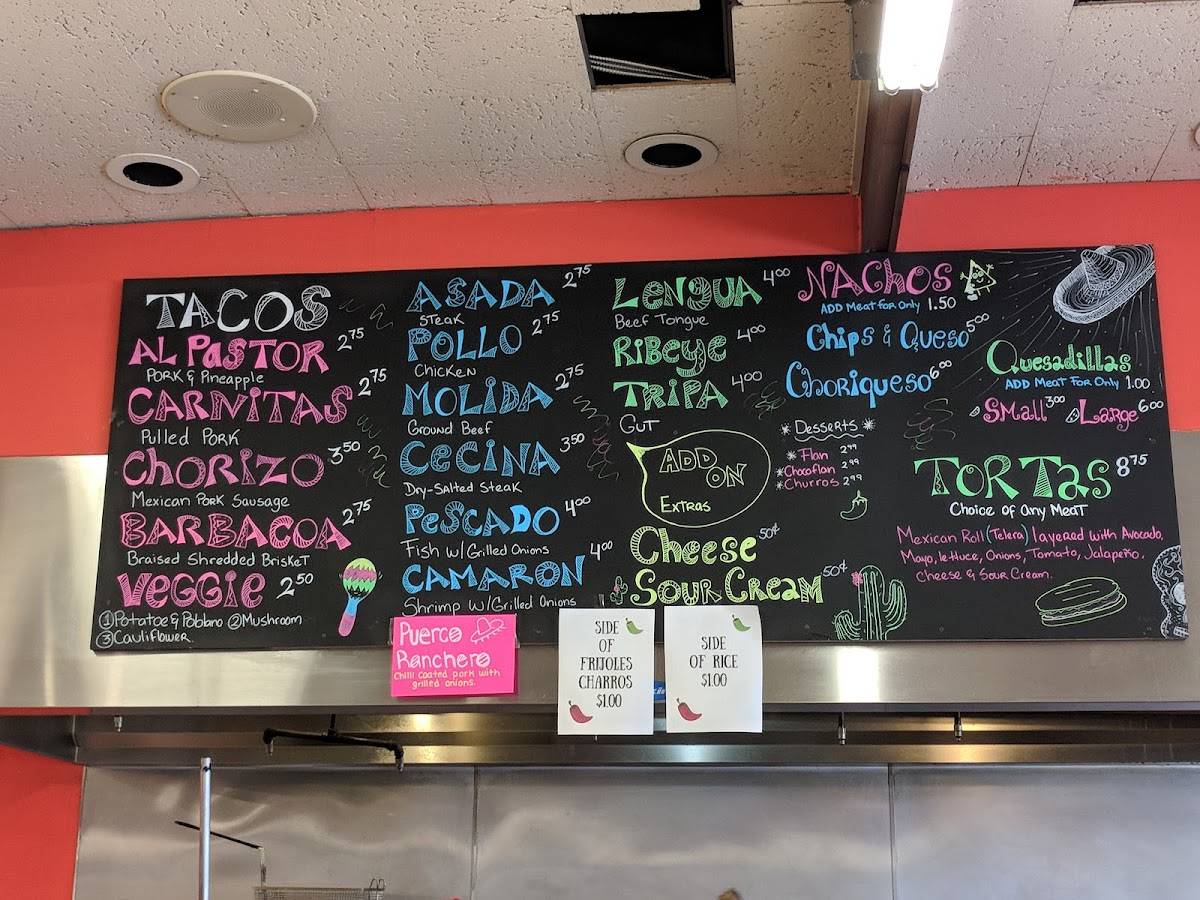 TACOS
AL PASTOR 2.75
PORK & Pineapple
CARNITAS 2.75
Pulled Pork
CHORIZO 3.50
Mexican Pork Sausage
BARBACOA 2.75
Braised Shredded Brisket
VEGGIE 2.50
①Potatoe & Poblano ②Mushroom
③Cauliflower
ASADA 2.75
STeak
POLLO 2.75
CHicKeN
MOLIDA 2.75
Ground Beef
CeCiNA 3.50
Dry-Salted Steak
PeSCADO 4.00
Fish W/Grilled Onions
CAMARON 4.00
Shrimp W/Grilled Onions
LENGUA 4.00
Beef Tongue
RiBeye 4.00
TRIPA 4.00
GuT
ADD ON
EXTRAS
Cheese 50¢
SOUR CREAM 50¢
NACHOS
ADD Meat for Only 1.50
Chips & Queso 5.00
Choriqueso 6.00
* Desserts *
* Flan 2.99
* Chocoflan 2.99
* Churros 2.99
Quesadillas
ADD Meat For Only 1.00
Small 3.00 Large 6.00
TORTas 8.75
Choice of Any MeaT
Mexican Roll (Telera) layered with Avocado,
Mayo, lettuce, Onions, Tomato, Jalapeño,
Cheese & Sour Cream.
Puerco
Ranchero
Chilli coated pork with
grilled onions.
SIDE
OF
FRIJOLES
CHARROS
$1.00
SIDE
OF RICE
$1.00